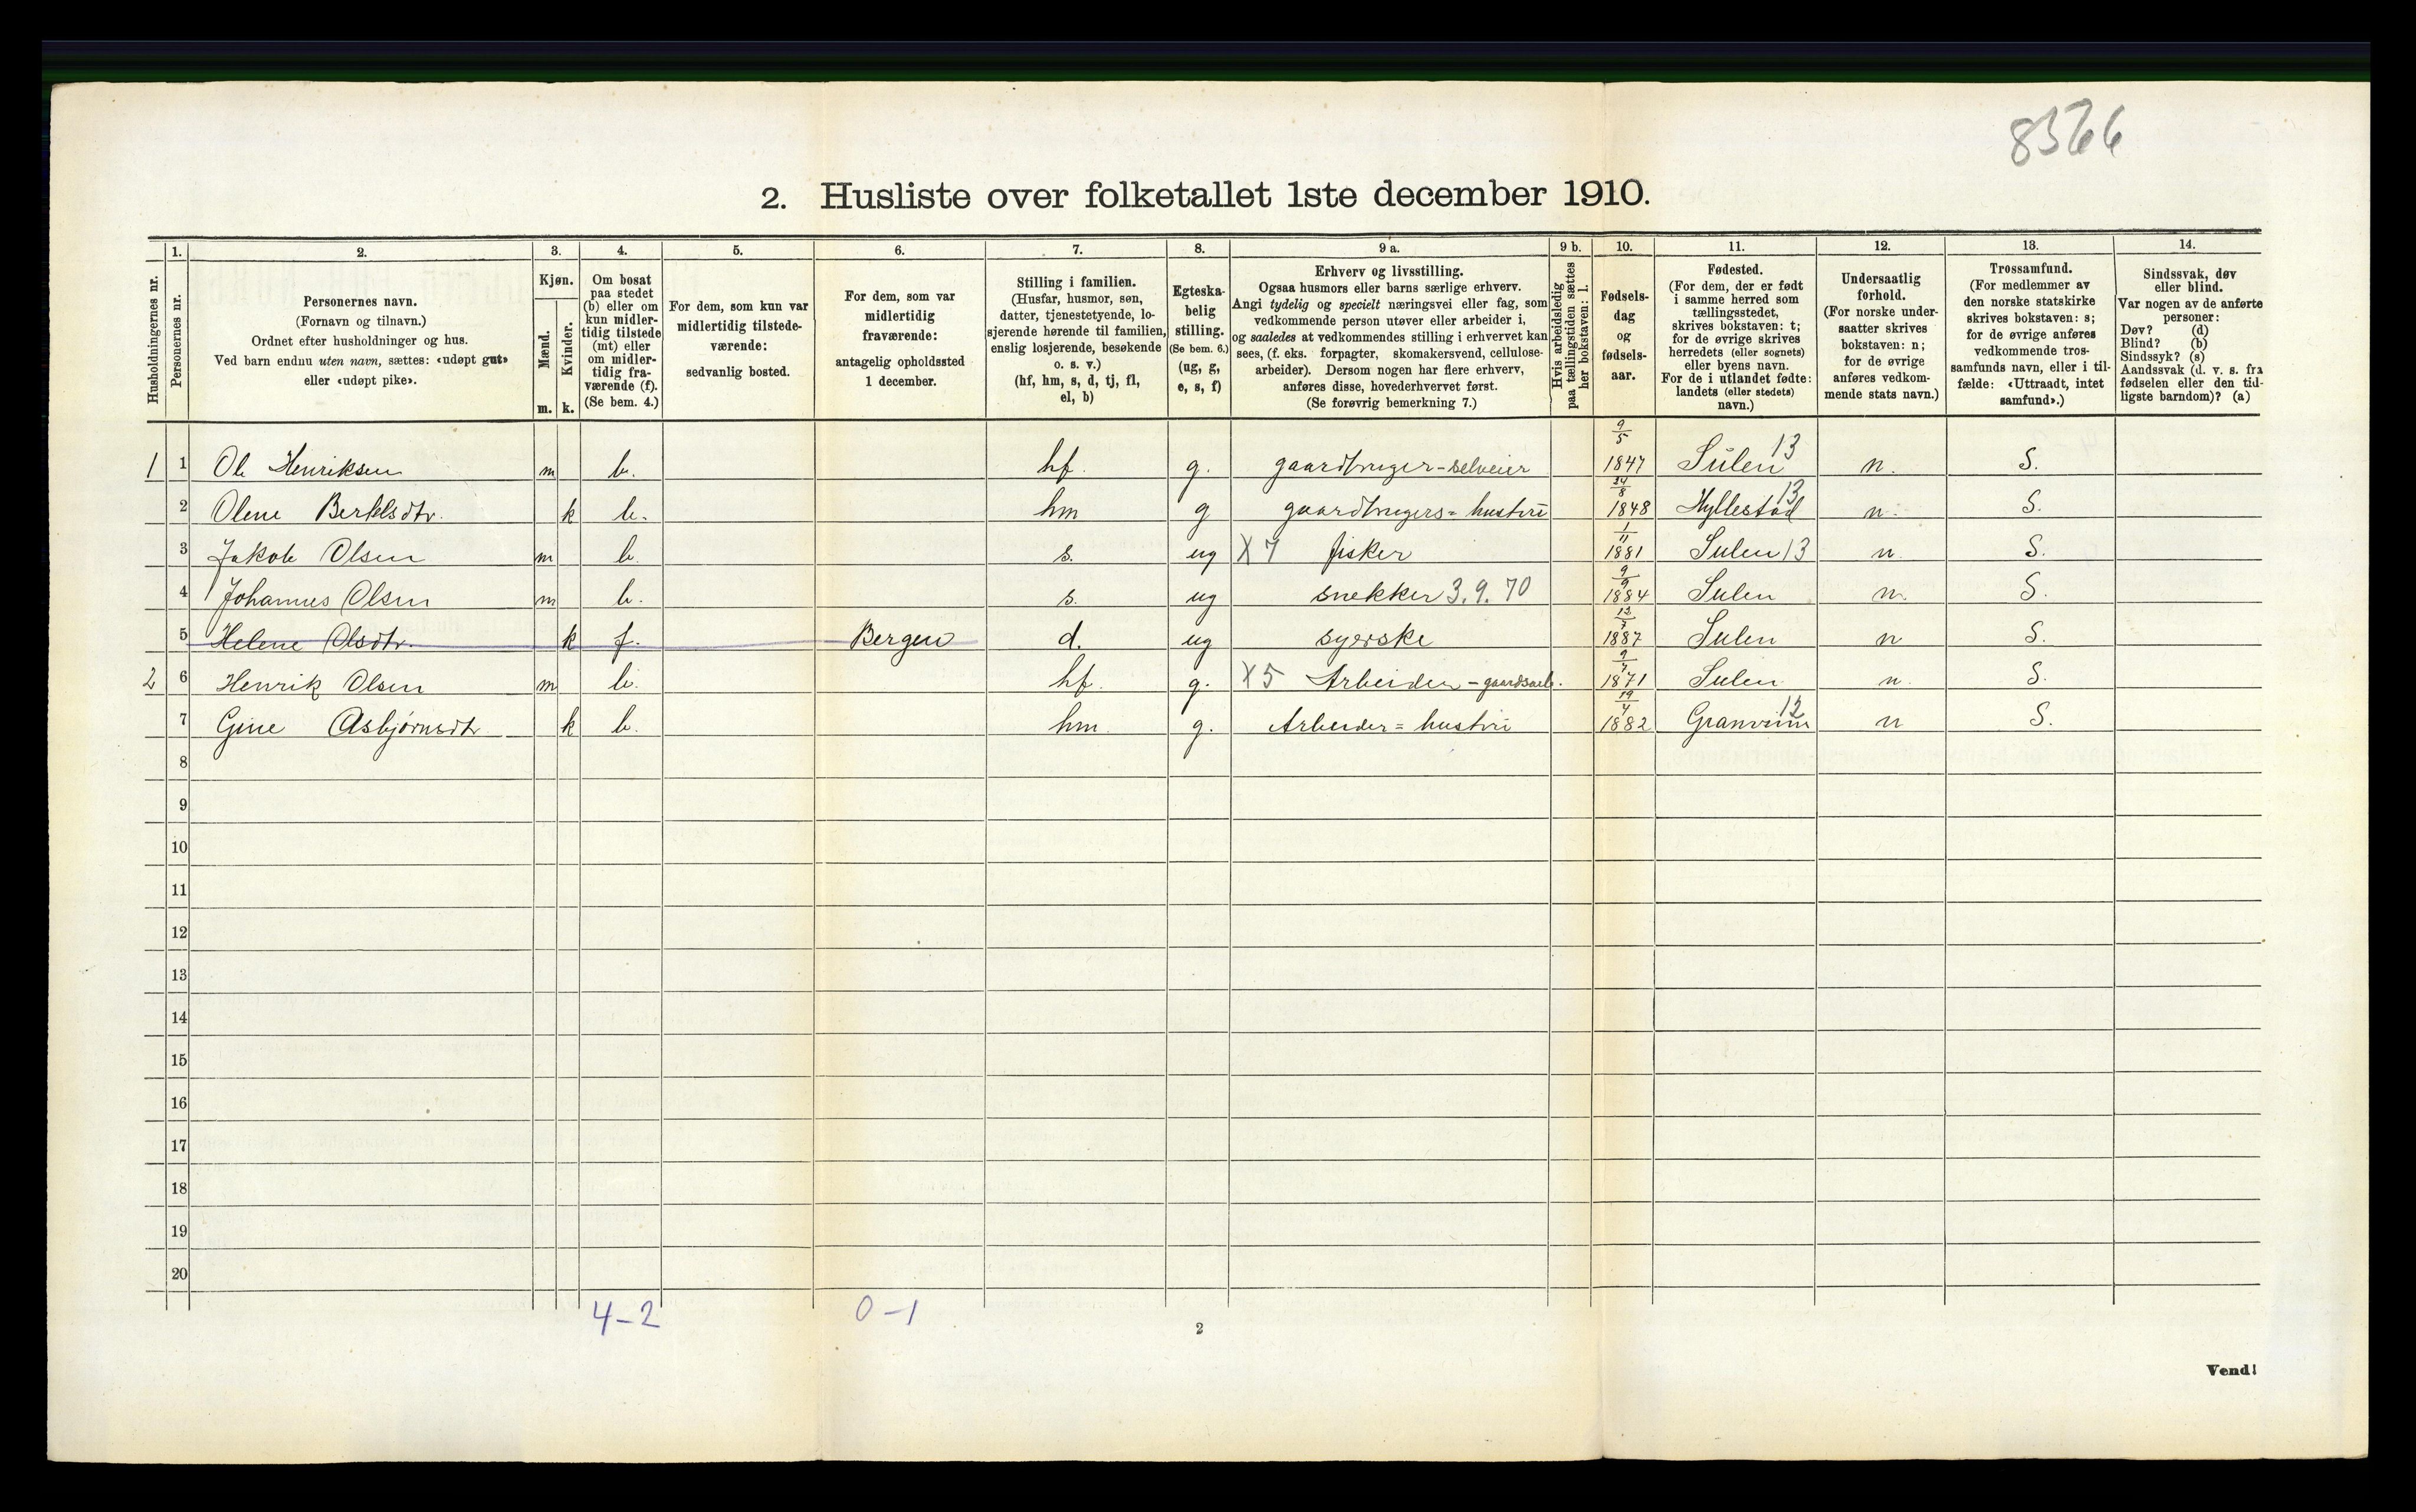 8566
2. Husliste over folketallet 1ste december 1910.
Husholdningernes nr.
1.
Personernes nr.
2.
Personernes navn.
(Fornavn og tilnavn.)
Ordnet efter husholdninger og hus.
Ved barn endnu uten navn, sættes: «udøpt gut»
eller «udøpt pike».
3.
Kjøn.
Mænd.
Kvinder.
m. k.
4.
Om bosat
paa stedet
(b) eller om
kun midler-
tidig tilstede
(mt) eller
om midler-
tidig fra-
værende (f).
(Se bem. 4.)
5.
For dem, som kun var
midlertidig tilstede-
værende:
sedvanlig bosted.
6.
For dem, som var
midlertidig
fraværende:
antagelig opholdssted
1 december.
7.
Stilling i familien.
(Husfar, husmor, søn,
datter, tjenestetyende, lo-
sjerende hørende til familien,
enslig losjerende, besøkende
o. s. v.)
(hf, hm, s, d, tj, fl,
el, b)
8.
Egteska-
belig
stilling.
(Se bem. 6.)
(ug, g,
e, s, f)
9 a.
Erhverv og livsstilling.
Ogsaa husmors eller barns særlige erhverv.
Angi tydelig og specielt næringsvei eller fag, som
vedkommende person utøver eller arbeider i,
og saaledes at vedkommendes stilling i erhvervet kan
sees, (f. eks. forpagter, skomakersvend, cellulose-
arbeider). Dersom nogen har flere erhverv,
anføres disse, hovederhvervet først.
(Se forøvrig bemerkning 7.)
9 b.
Hvis arbeidsledig
paa tællingstiden sættes
her bokstaven: l.
10.
Fødsels-
dag
og
fødsels-
aar.
11.
Fødested.
(For dem, der er født
i samme herred som
tællingsstedet,
skrives bokstaven: t;
for de øvrige skrives
herredets (eller sognets)
eller byens navn.
For de i utlandet fødte:
landets (eller stedets)
navn.)
12.
Undersaatlig
forhold.
(For norske under-
saatter skrives
bokstaven: n;
for de øvrige
anføres vedkom-
mende stats navn.)
13.
Trossamfund.
(For medlemmer av
den norske statskirke
skrives bokstaven: s;
for de øvrige anføres
vedkommende tros-
samfunds navn, eller i til-
fælde: «Uttraadt, intet
samfund».)
14.
Sindssvak, døv
eller blind.
Var nogen av de anførte
personer:
Døv? (d)
Blind? (b)
Sindssyk? (s)
Aandssvak (d. v. s. fra
fødselen eller den tid-
ligste barndom)? (a)
1 1 Ole Henriksen m b. hf. g. gaardbruger-selveier 9/5 1847 Sulen 13 n. S.
2 Olene Bertelsdtr. k b. hm g gaardbrugers=hustru 24/8 1848 Hyllestad 13 n. S.
3 Jakob Olsen m b. s. ug X7 fisker 1/11 1881 Sulen 13 n. S.
4 Johannes Olsen m b. s. ug snekker 3.9.70 9/9 1884 Sulen n. S.
5 Helene Olsdtr. k f. Bergen d. ug syerske 1887 Sulen n S.
2 6 Henrik Olsen m b. hf. g. X5 Arbeider - gaardsarb. 1871 Sulen n. S.
7 Gine Asbjørnsdtr k b. hm. g. Arbeider=hustru 19/4 1882 Granvin 12 n S.
8
9
10
11
12
13
14
15
16
17
18
19
20
4-2 0-1
2
Vend!